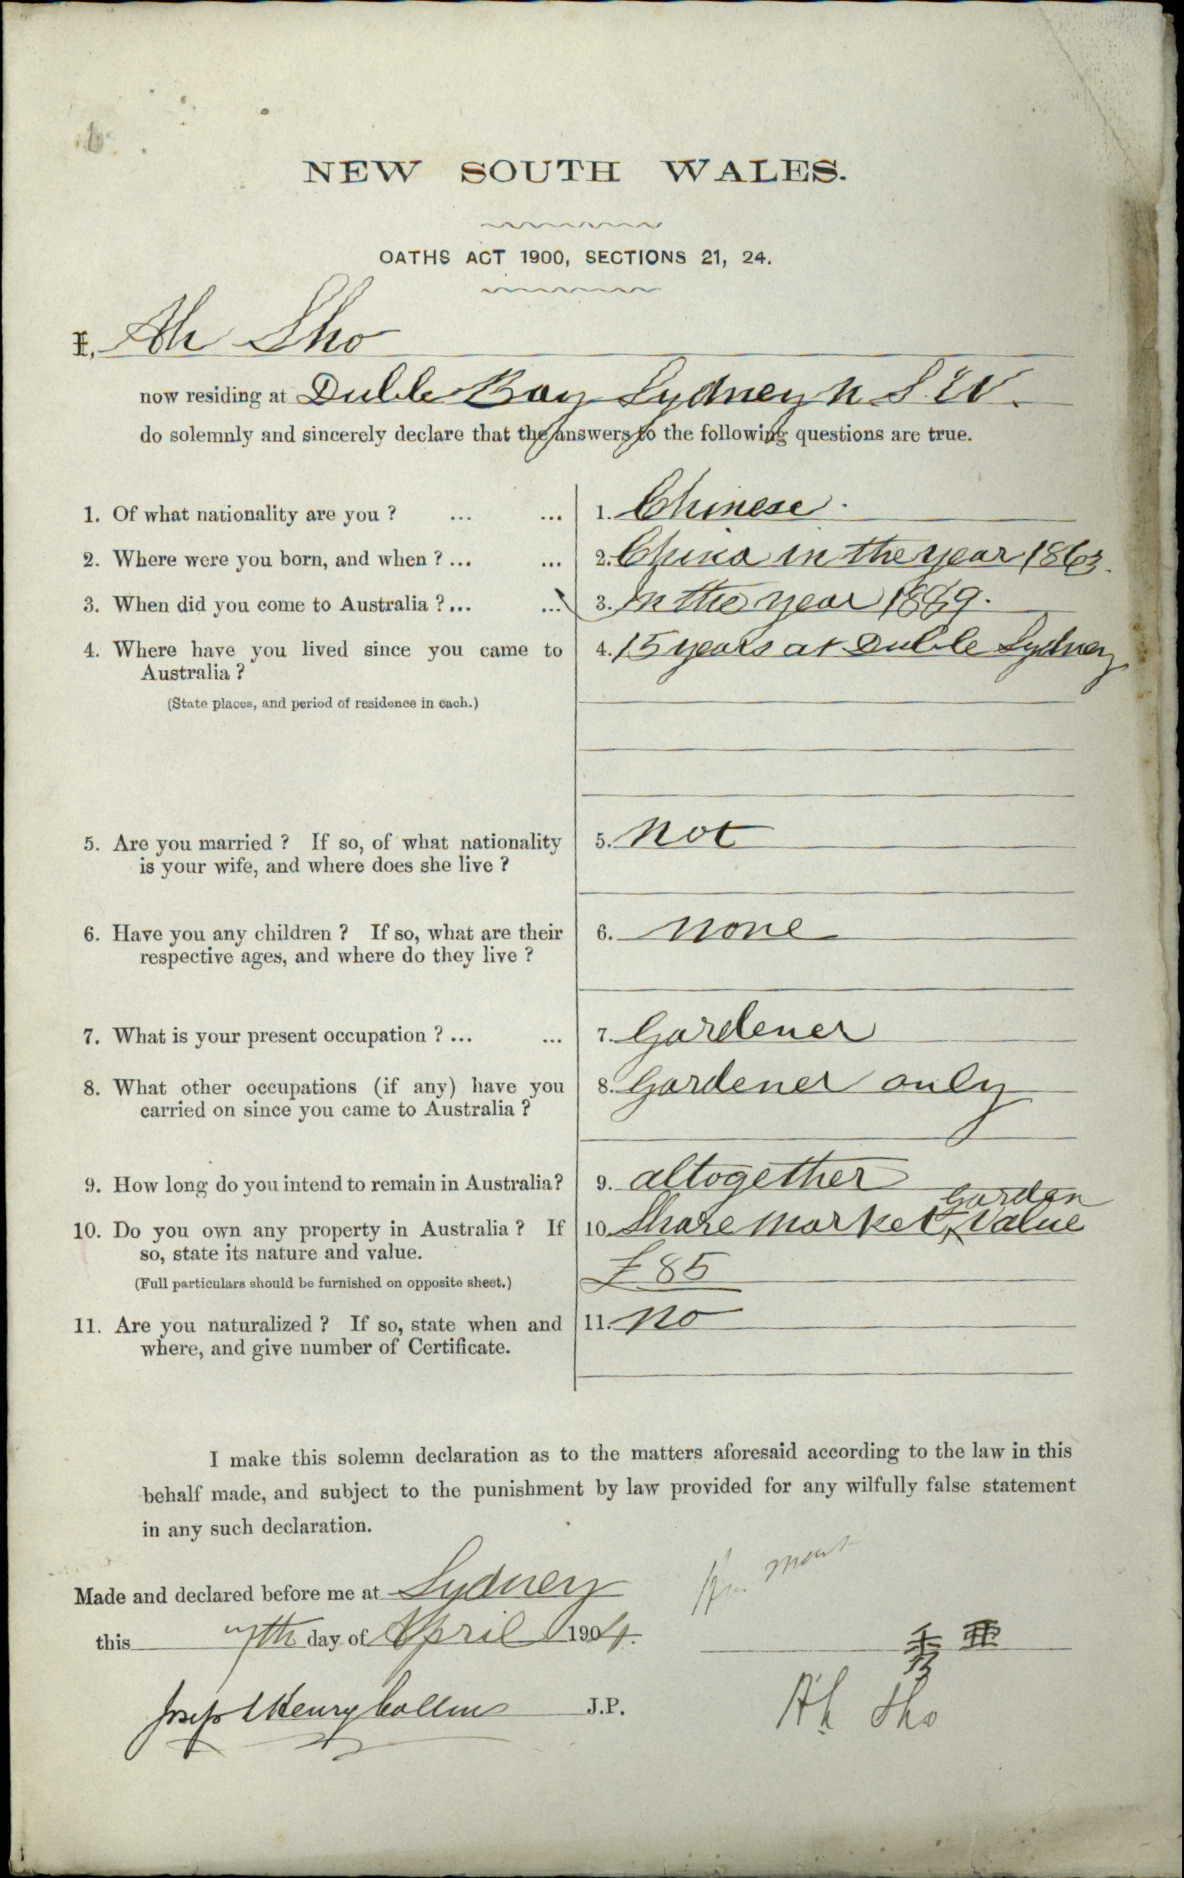 NEW SOUTH WALES.
OATHS ACT 1900, SECTIONS 21, 24.
I, Ah Sho
now residing at Dulle Bay Sydney N. S. W.
do solemnly and sincerely declare that the answers to the following questions are true.
1. Of what nationality are you ? ... ... 1. Chinese.
2. Where were you born, and when ? ... ... 2. China in the year 1863.
3. When did you come to Australia ? ... ... 3. In the year 1889.
4. Where have you lived since you came to 4. 15 years at Dulle Sydney
Australia ?
(State places, and period of residence in each.)
5. Are you married ? If so, of what nationality 5. not
is your wife, and where does she live ?
6. Have you any children ? If so, what are their 6. none
respective ages, and where do they live ?
7. What is your present occupation ? ... ... 7. Gardener
8. What other occupations (if any) have you 8. Gardener only
carried on since you came to Australia ?
9. How long do you intend to remain in Australia? 9. altogether
10. Do you own any property in Australia ? If 10. Share Market Garden Value
so, state its nature and value. £85
(Full particulars should be furnished on opposite sheet.)
11. Are you naturalized ? If so, state when and 11. no
where, and give number of Certificate.
I make this solemn declaration as to the matters aforesaid according to the law in this
behalf made, and subject to the punishment by law provided for any wilfully false statement
in any such declaration.
Made and declared before me at Sydney
this 7th day of April 1904.
亜秀
Joseph Henry Collins J.P. Ah Sho